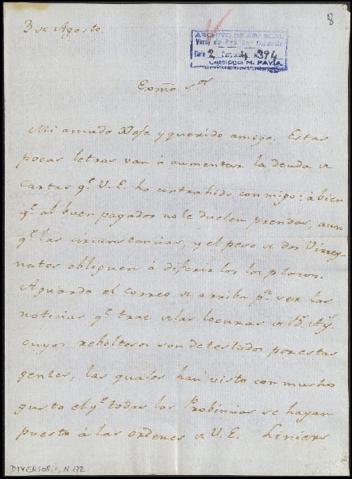 8
3 de Agosto
Exmo Sor
Mi amado Xefe y querido amigo. Estas
pocas letras van á aumentar la deuda de
cartas qe V.E. ha contrahido conmigo: á bien
qe al buen pagador no le duelen prendas, aun
qe las circunstancias, y el peso de dos Virrey
natos obliguen á diferir los plazos.
Aguardo el correo de arriba pa ver las
noticias qe trae de las locuras de Bs Ays
cuyos rebeltosos son detestados por estas
gentes, las quales han visto con mucho
gusto el qe todas las Probincias se hayan
puesto á las ordenes de V.E. Liniers
DIVERSOS